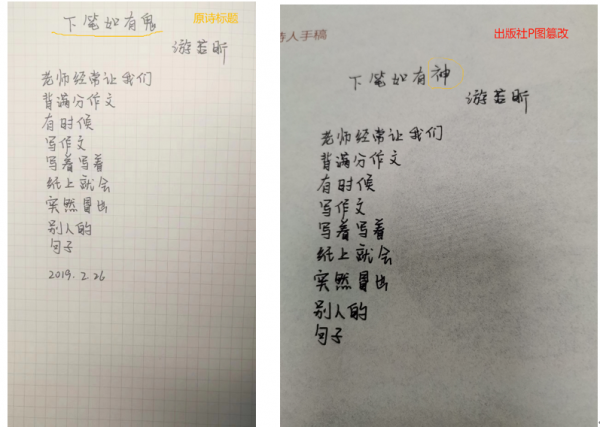 原诗标题
下笔如有鬼
游若昕
老师经常让我们
背满分作文
有时候
写作文
写着写着
纸上就会
突然冒出
别人的
句子
2019.2.26
出版社P图篡改
诗人手稿
下笔如有神
游若昕
老师经常让我们
背满分作文
有时候
写作文
写着写着
纸上就会
突然冒出
别人的
句子